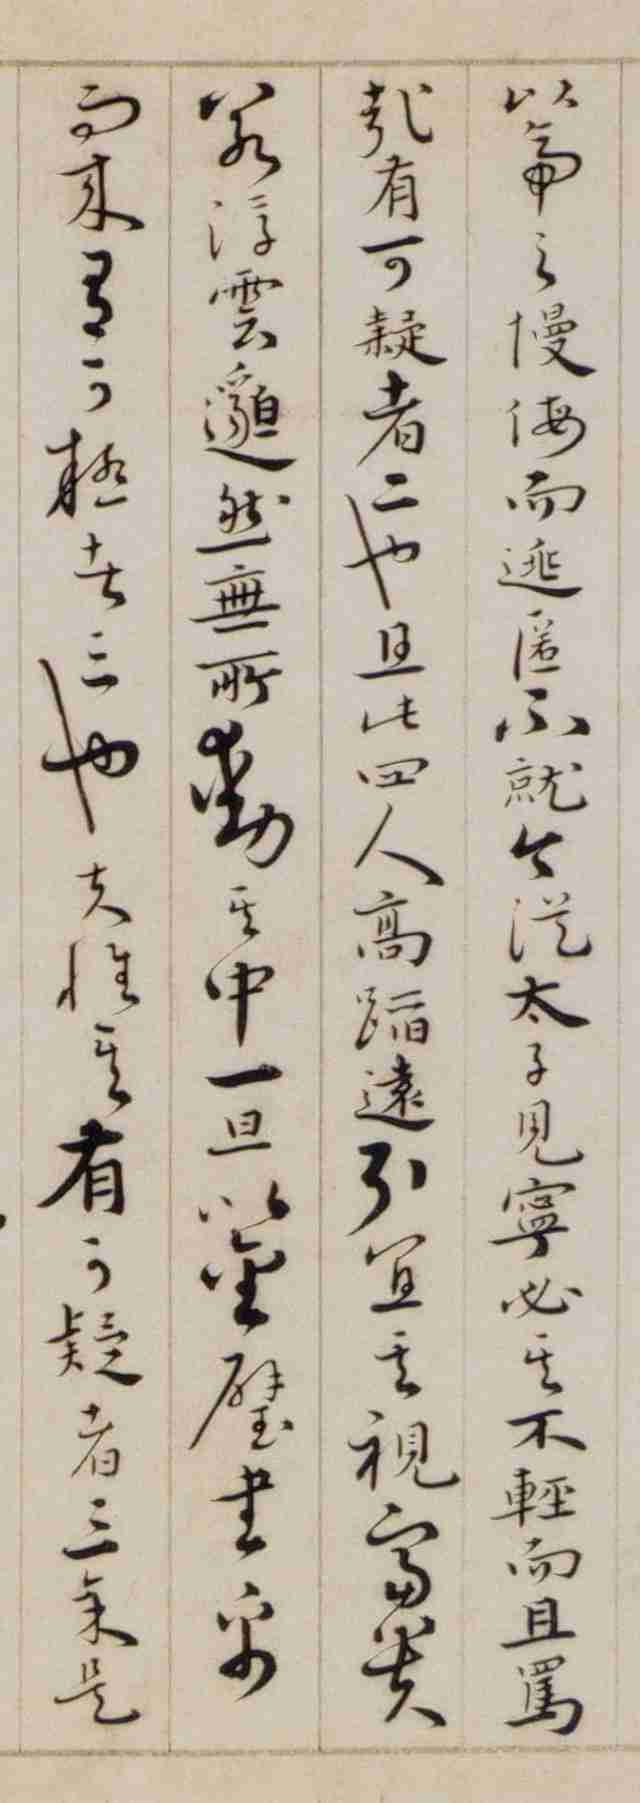 以帝之慢侮而逃匿不就今從太子見寧必其不輕而且罵
哉有可疑者二也且此四人高蹈遠引宜其視富貴
若浮雲邈然無所動其中一旦以金璧書帛
而來有可疑者三也夫惟其有可疑者三矣是